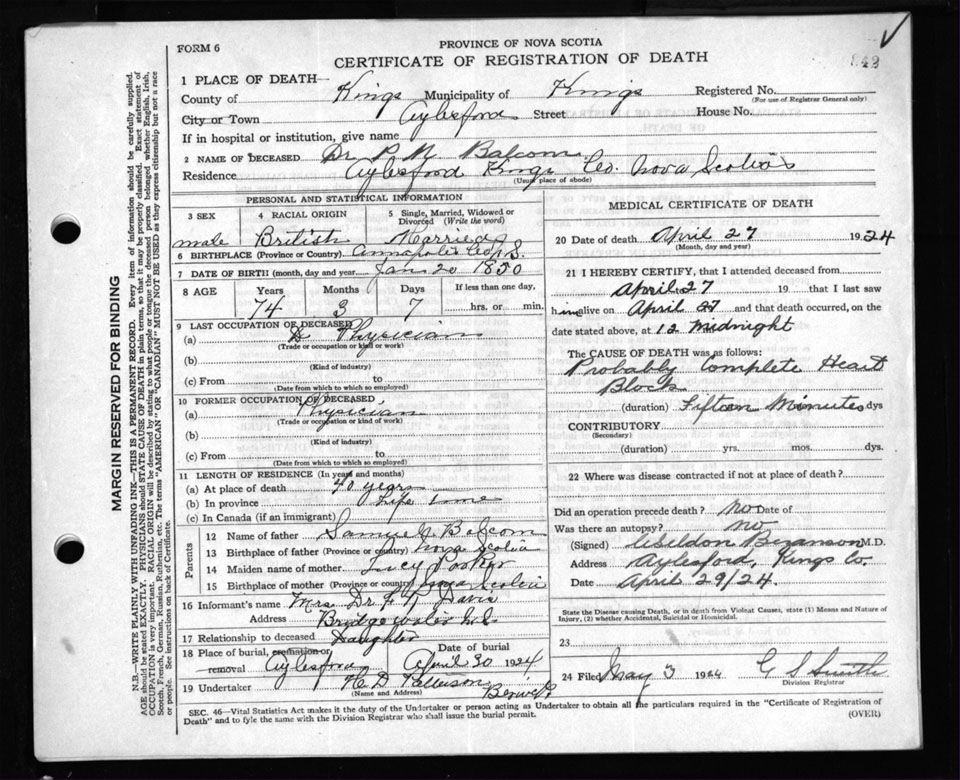 FORM 6
PROVINCE OF NOVA SCOTIA
CERTIFICATE OF REGISTRATION OF DEATH
842
1 PLACE OF DEATH—
County of Kings Municipality of Kings Registered No.
(For use of Registrar General only)
City or Town Aylesford Street House No.
If in hospital or institution, give name
2 NAME OF DECEASED Dr P. M. Balcom
Residence Aylesford Kings Co. Nova Scotia
(Usual place of abode)
PERSONAL AND STATISTICAL INFORMATION
3 SEX 4 RACIAL ORIGIN 5 Single, Married, Widowed or Divorced (Write the word)
male British Married
6 BIRTHPLACE (Province or Country) Annapolis Co N.S.
7 DATE OF BIRTH (month, day and year) Jan 20 1850
8 AGE Years Months Days If less than one day,
74 3 7 hrs. or min.
9 LAST OCCUPATION OF DECEASED
(a) Physician
(Trade or occupation or kind of work)
(b)
(Kind of industry)
(c) From to
(Date from which to which so employed)
10 FORMER OCCUPATION OF DECEASED
(a) Physician
(Trade or occupation or kind of work)
(b)
(Kind of industry)
(c) From to
(Date from which to which so employed)
11 LENGTH OF RESIDENCE (In years and months)
(a) At place of death 40 years
(b) In province Life time
(c) In Canada (if an immigrant)
Parents
12 Name of father Samuel Balcom
13 Birthplace of father (Province or country) Nova Scotia
14 Maiden name of mother Lucy Parker
15 Birthplace of mother (Province or country) Nova Scotia
16 Informant's name Mrs. Dr F. R. Davis
Address Bridgewater N.S.
17 Relationship to deceased Daughter
18 Place of burial, cremation or removal Aylesford Date of burial April 30 1924
19 Undertaker H D Patterson Berwick
(Name and Address)
MEDICAL CERTIFICATE OF DEATH
20 Date of death April 27 1924
(Month, day and year)
21 I HEREBY CERTIFY, that I attended deceased from
April 27 19 that I last saw
him alive on April 27 and that death occurred, on
the date stated above, at 12 Midnight
The CAUSE OF DEATH was as follows:
Probably Complete Heart
Block
(duration) Fifteen Minutes dys
CONTRIBUTORY
(Secondary)
(duration) yrs. mos. dys.
22 Where was disease contracted if not at place of death?
Did an operation precede death? no Date of
Was there an autopsy? no
(Signed) Weldon M.D.
Address Aylesford, Kings Co.
Date April 29/24.
State the Disease causing Death, or in death from Violent Causes, state (1) Means and Nature of
Injury, (2) whether Accidental, Suicidal or Homicidal.
23
24 Filed May 3 1924 G S Smith
Division Registrar
SEC. 46—Vital Statistics Act makes it the duty of the Undertaker or person acting as Undertaker to obtain all the particulars required in the "Certificate of Registration of
Death" and to fyle the same with the Division Registrar who shall issue the burial permit.
(OVER)
MARGIN RESERVED FOR BINDING
N.B.—WRITE PLAINLY WITH UNFADING INK—THIS IS A PERMANENT RECORD. Every item of information should be carefully supplied.
AGE should be stated EXACTLY. PHYSICIANS should STATE CAUSE OF DEATH in plain terms, so that it may be properly classified. Exact statement of
OCCUPATION is very important. RACIAL ORIGIN will be described by stating to what people or tongue the deceased person belonged whether English, Irish,
Scotch, French, German, Russian, Ruthenian, etc. The terms "AMERICAN" OR "CANADIAN" MUST NOT BE USED as they express citizenship but not a race
or people. See instructions on back of Certificate.